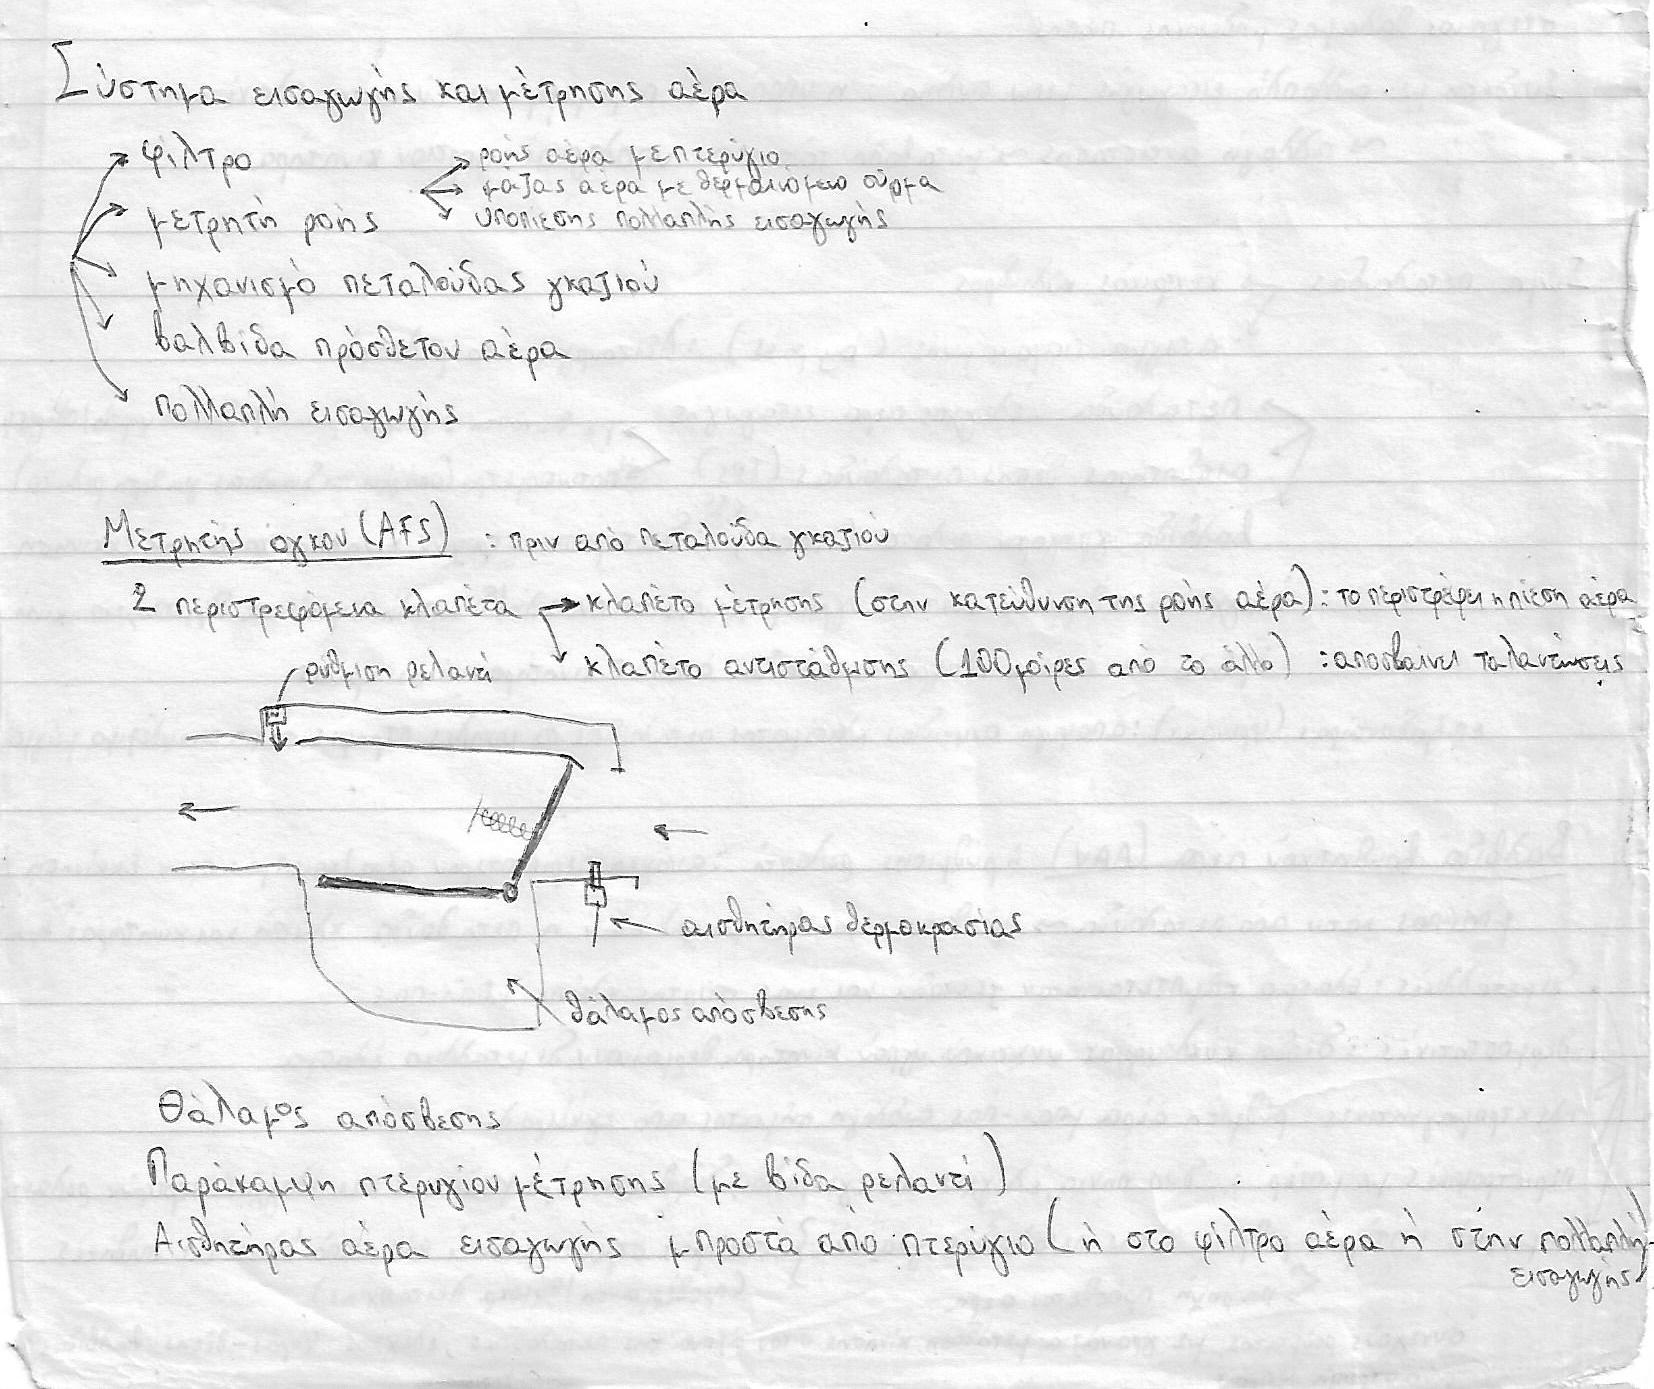 Σύστημα εισαγωγής και μέτρησης αέρα
φίλτρο
ροής αέρα με πτερύγιο
μάζας αέρα με θερμαινόμενο σύρμα
μετρητή ροής
υποπίεσης πολλαπλής εισαγωγής
μηχανισμό πεταλούδας γκαζιού
βαλβίδα πρόσθετου αέρα
πολλαπλή εισαγωγής
Μετρητής όγκου (AFS) : πριν από πεταλούδα γκαζιού
2 περιστρεφόμενα κλαπέτα → κλαπέτο μέτρησης (στην κατεύθυνση της ροής αέρα) : το περιστρέφει η πίεση αέρα
κλαπέτο αντιστάθμισης (100 μοίρες από το άλλο) : αποσβαίνει ταλαντώσεις
ρύθμιση ρελαντί
αισθητήρας θερμοκρασίας
θάλαμος απόσβεσης
Θάλαμος απόσβεσης
Παράκαμψη πτερυγίου μέτρησης (με βίδα ρελαντί)
Αισθητήρας αέρα εισαγωγής μπροστά από πτερύγιο (ή στο φίλτρο αέρα ή στην πολλαπλή
εισαγωγής)